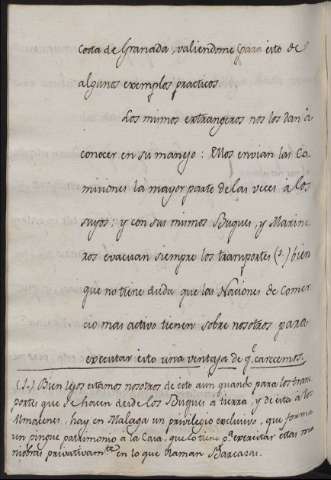 Costa de Granada, valiendome para esto de
algunos exemplos practicos.
Los mismos extrangeros nos los dan á
conocer en su manejo: Ellos envian las Co=
misiones la mayor parte de las veces a los
suyos; y con sus mismos Buques, y Marine
ros evacuan siempre los transportes (1.) bien
que no tiene duda que las Naciones de Comer
cio mas activo tienen sobre nosotros para
executar esto una ventaja de q.e carecemos.
(1.) Bien lejos estamos nosotros de esto aun quando para los trans
portes que se hacen desde los Buques a tierra, y de esta a los
Almacenes, hay en Malaga un privilegio exclusivo, que forma
un pingue patrimonio a la Casa, que lo tiene p.a executar estas ma
niobras privativam.te en lo que llaman Barcazas.